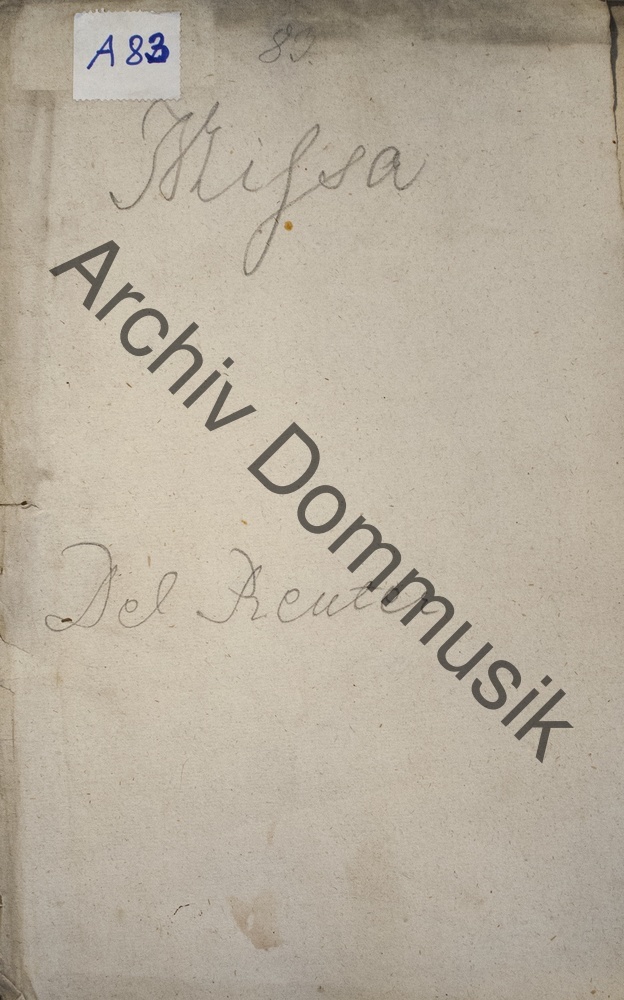 A 83
83.
Missa
Archiv Dommusik
Del Reutter